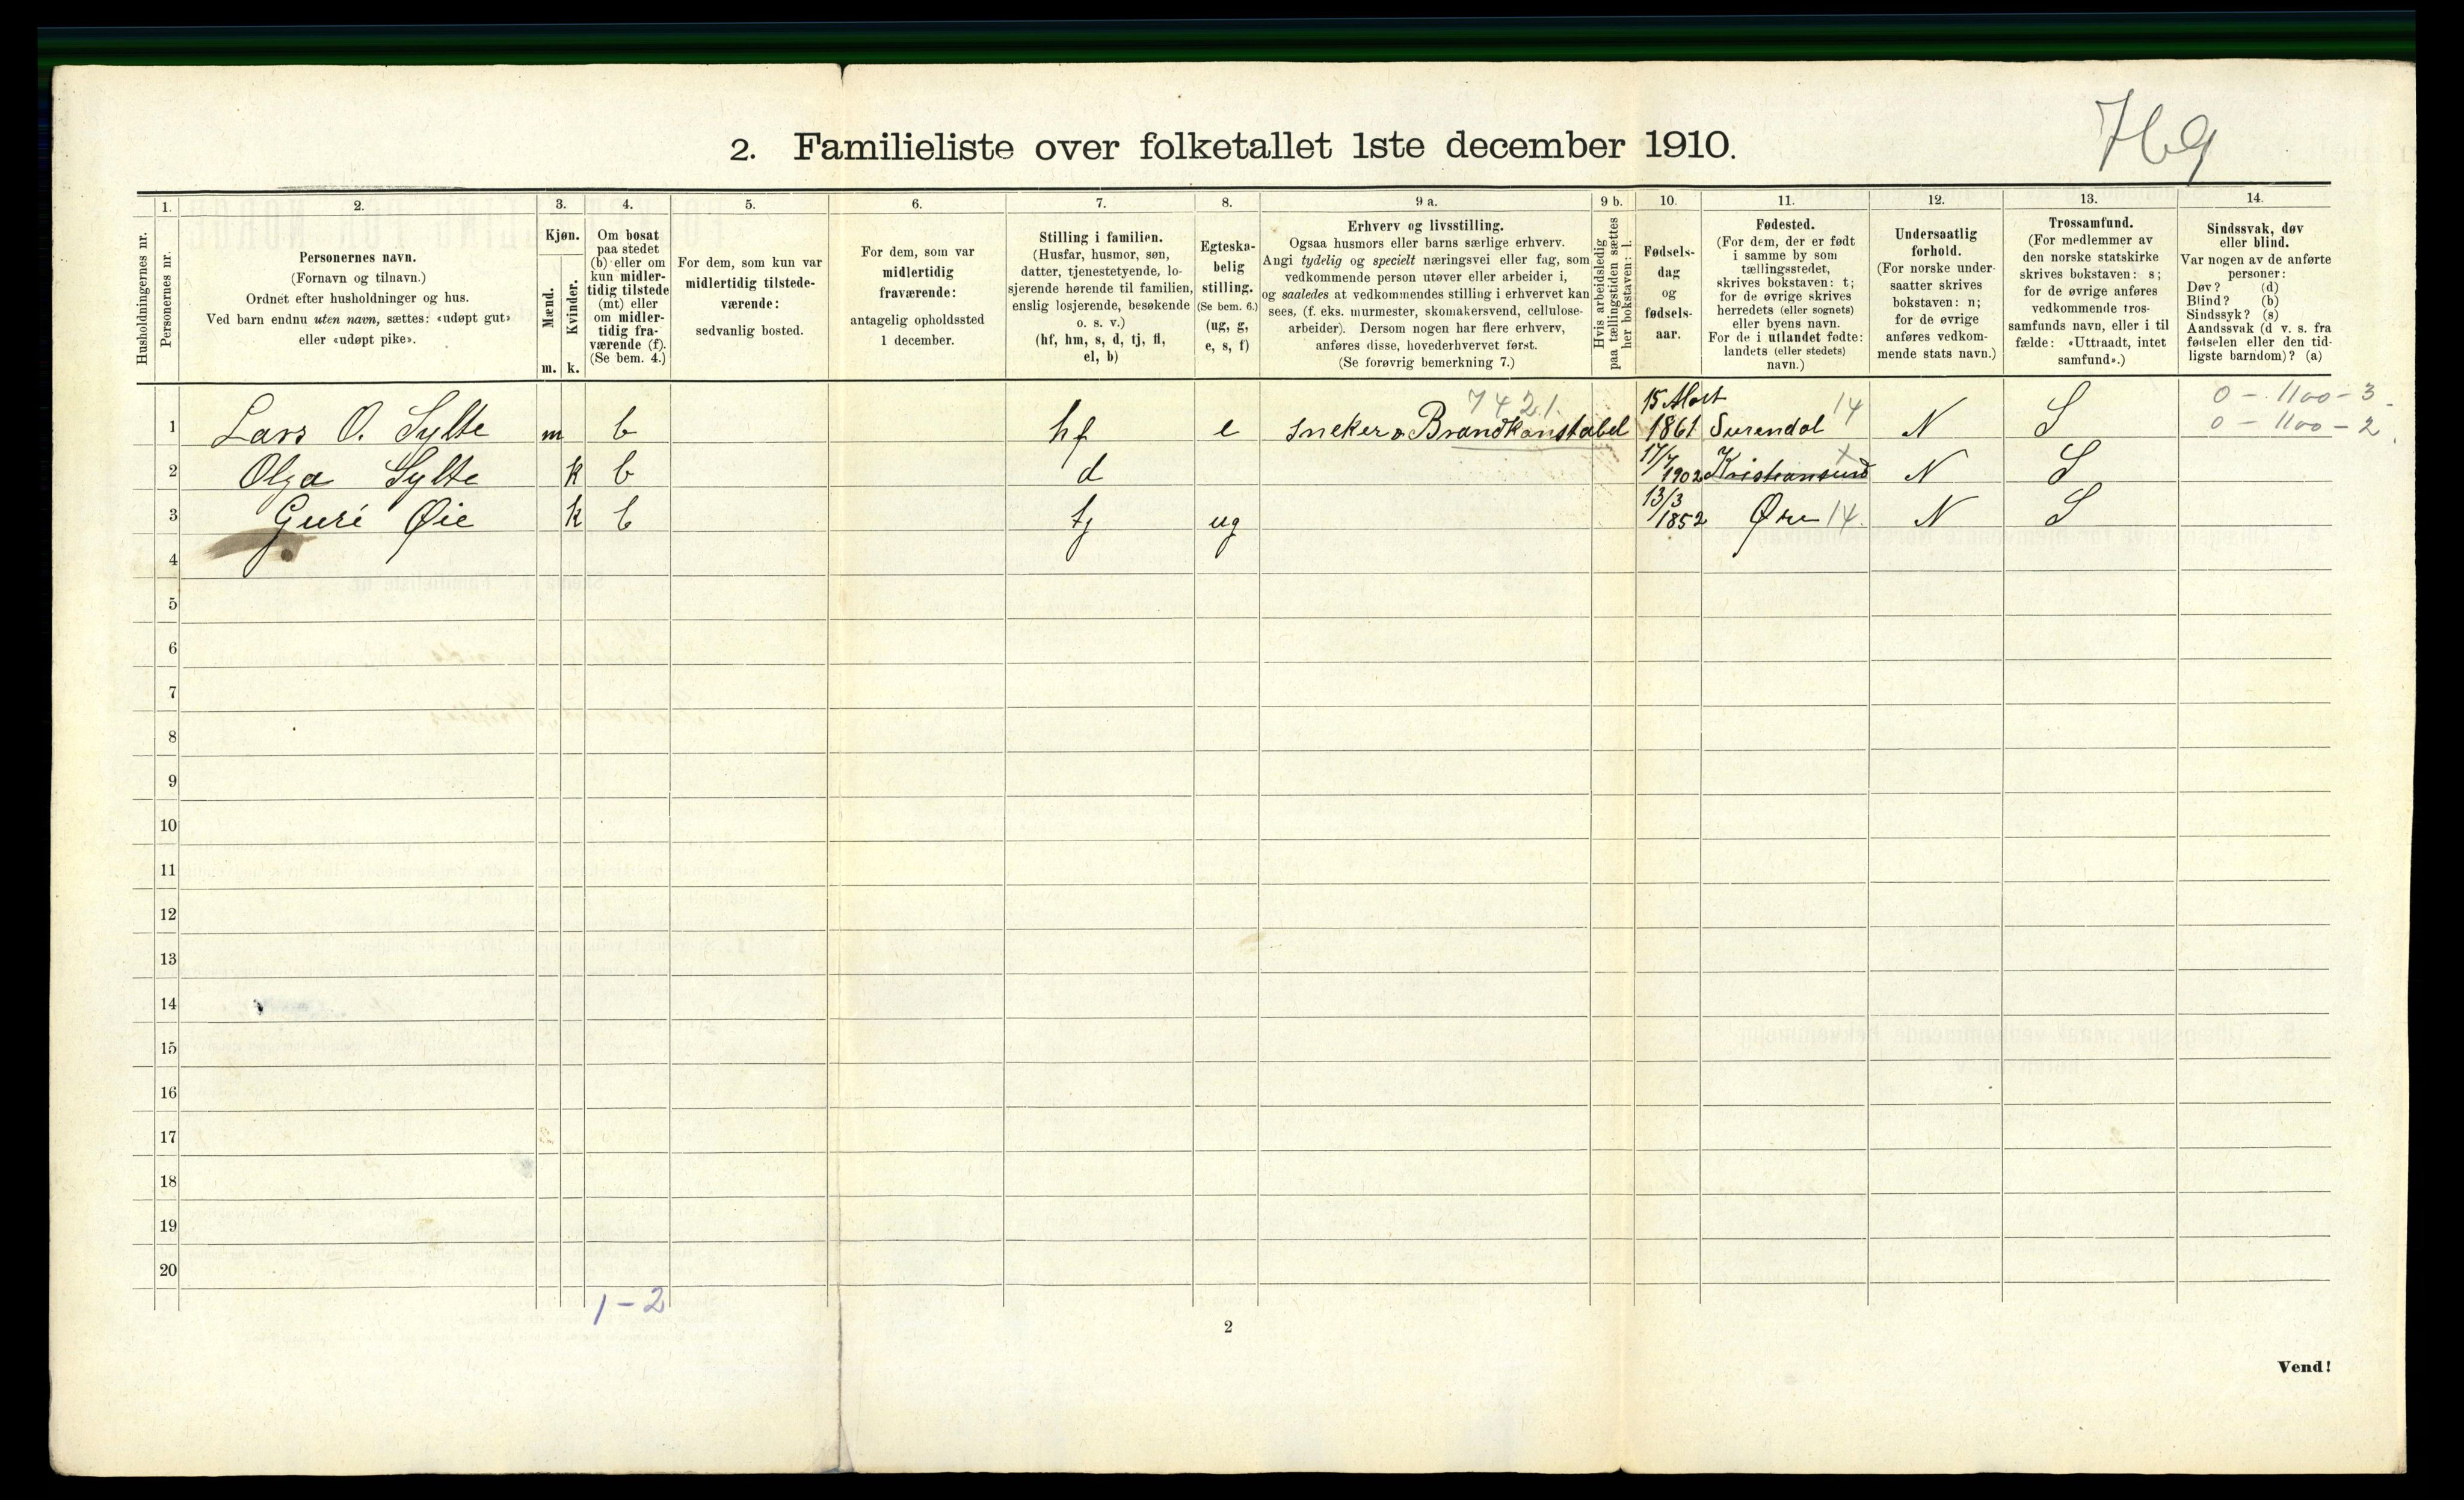 769
2. Familieliste over folketallet 1ste december 1910.
1. 2. 3. 4. 5. 6. 7. 8. 9 a. 9 b. 10. 11. 12. 13. 14.
Husholdningernes nr.
Personernes nr.
Personernes navn.
(Fornavn og tilnavn.)
Ordnet efter husholdninger og hus.
Ved barn endnu uten navn, sættes: «udøpt gut»
eller «udøpt pike».
Kjøn.
Mænd.
Kvinder.
m. k.
Om bosat
paa stedet
(b) eller om
kun midler-
tidig tilstede
(mt) eller
om midler-
tidig fra-
værende (f).
(Se bem. 4.)
For dem, som kun var
midlertidig tilstede-
værende:
sedvanlig bosted.
For dem, som var
midlertidig
fraværende:
antagelig opholdssted
1 december.
Stilling i familien.
(Husfar, husmor, søn,
datter, tjenestetyende, lo-
sjerende hørende til familien,
enslig losjerende, besøkende
o. s. v.)
(hf, hm, s, d, tj, fl,
el, b)
Egteska-
belig
stilling.
(Se bem. 6.)
(ug, g,
e, s, f)
Erhverv og livsstilling.
Ogsaa husmors eller barns særlige erhverv.
Angi tydelig og specielt næringsvei eller fag, som
vedkommende person utøver eller arbeider i,
og saaledes at vedkommendes stilling i erhvervet kan
sees, (f. eks. murmester, skomakersvend, cellulose-
arbeider). Dersom nogen har flere erhverv,
anføres disse, hovederhvervet først.
(Se forøvrig bemerkning 7.)
Hvis arbeidsledig
paa tællingstiden sættes
her bokstaven: l.
Fødsels-
dag
og
fødsels-
aar.
Fødested.
(For dem, der er født
i samme by som
tællingsstedet,
skrives bokstaven: t;
for de øvrige skrives
herredets (eller sognets)
eller byens navn.
For de i utlandet fødte:
landets (eller stedets)
navn.)
Undersaatlig
forhold.
(For norske under-
saatter skrives
bokstaven: n;
for de øvrige
anføres vedkom-
mende stats navn.)
Trossamfund.
(For medlemmer av
den norske statskirke
skrives bokstaven: s;
for de øvrige anføres
vedkommende tros-
samfunds navn, eller i til
fælde: «Uttraadt, intet
samfund».)
Sindssvak, døv
eller blind.
Var nogen av de anførte
personer:
Døv? (d)
Blind? (b)
Sindssyk? (s)
Aandssvak (d v. s. fra
fødselen eller den tid-
ligste barndom)? (a)
7421. 0 - 1100 - 3
1 Lars O. Sylte m b hf e Sneker o Brandkonstabel 15 Mart 1861 Surendal 14 N S 0 - 1100 - 2
2 Olga Sylte k b d 17/7 1902 Kristiansund x N S
3 Guré Øie k b tj ug 13/3 1852 Øre 14 N S
4
5
6
7
8
9
10
11
12
13
14
15
16
17
18
19
20
1-2
2
Vend!